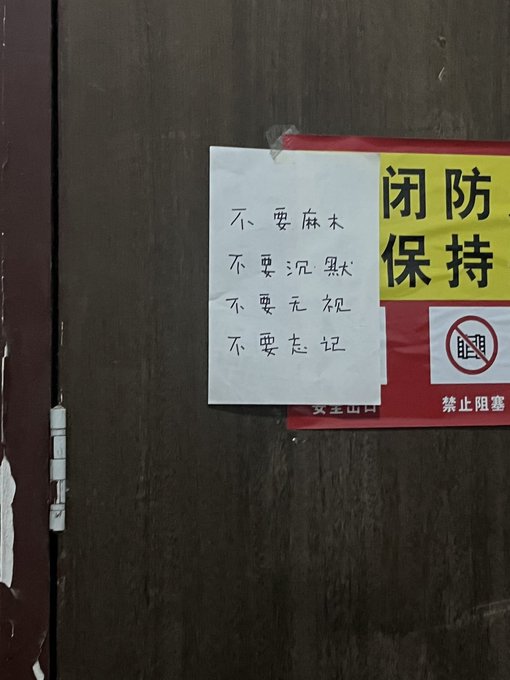 不要麻木
不要沉默
不要无视
不要忘记
闭防
保持
安全出口
禁止阻塞